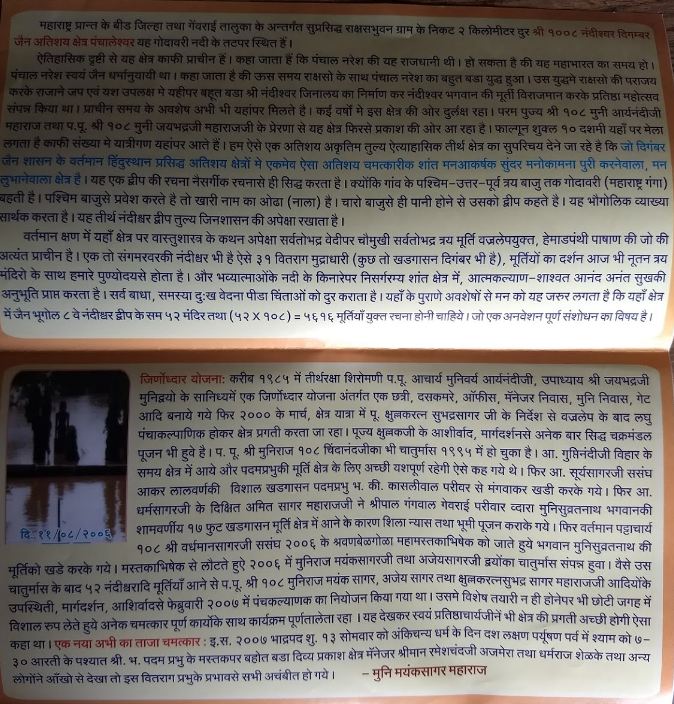 महाराष्ट्र प्रान्त के बीड जिल्हा तथा गेंवराई तालुका के अन्तर्गत सुप्रसिद्ध राक्षसभुवन ग्राम के निकट २ किलोमीटर दुर श्री १००८ नंदीश्वर दिगम्बर
जैन अतिशय क्षेत्र पंचालेश्वर यह गोदावरी नदी के तटपर स्थित हैं।
ऐतिहासिक दृष्टी से यह क्षेत्र काफी प्राचीन हैं। कहा जाता हैं कि पंचाल नरेश की यह राजधानी थी। हो सकता है की यह महाभारत का समय हो।
पंचाल नरेश स्वयं जैन धर्मानुयायी था। कहा जाता है की ऊस समय राक्षसो के साथ पंचाल नरेश का बहुत बडा युद्ध हुआ। उस युद्धमे राक्षसो की पराजय
करके राजाने जप एवं यश उपलक्ष मे यहीपर बहूत बडा श्री नंदीश्वर जिनालय का निर्माण कर नंदीश्वर भगवान की मूर्ती विराजमान करके प्रतिष्ठा महोत्सव
संपन्न किया था। प्राचीन समय के अवशेष अभी भी यहांपर मिलते है। कई वर्षो मे इस क्षेत्र की ओर दुर्लक्ष रहा। परम पुज्य श्री १०८ मुनी आर्यनंदीजी
महाराज तथा प.पू. श्री १०८ मुनी जयभद्रजी महाराजजी के प्रेरणा से यह क्षेत्र फिरसे प्रकाश की ओर आ रहा है। फाल्गून शुक्ल १० दशमी यहाँ पर मेला
लगता है काफी संख्या मे यात्रीगण यहांपर आते हैं। हम ऐसे एक अतिशय अकृतिम तुल्य ऐत्याहासिक तीर्थ क्षेत्र का सुपरिचय देने जा रहे है कि जो दिगंबर
जैन शासन के वर्तमान हिंदुस्थान प्रसिद्ध अतिशय क्षेत्रों मे एकमेव ऐसा अतिशय चमत्कारीक शांत मनआकर्षक सुंदर मनोकामना पुरी करनेवाला, मन
लुभानेवाला क्षेत्र है। यह एक द्वीप की रचना नैसर्गीक रचनासे ही सिद्ध करता है। क्योंकि गांव के पश्चिम-उत्तर-पूर्व त्रय बाजु तक गोदावरी (महाराष्ट्र गंगा)
बहती है। पश्चिम बाजुसे प्रवेश करते है तो खारी नाम का ओढा (नाला) है। चारो बाजुसे ही पानी होने से उसको द्वीप कहते है। यह भौगोलिक व्याख्या
सार्थक करता है। यह तीर्थ नंदीश्वर द्वीप तुल्य जिनशासन की अपेक्षा रखाता है।
वर्तमान क्षण में यहाँ क्षेत्र पर वास्तुशास्त्र के कथन अपेक्षा सर्वतोभद्र वेदीपर चौमुखी सर्वतोभद्र त्रय मूर्ति वज्रलेपयुक्त, हेमाडपंथी पाषाण की जो की
अत्यंत प्राचीन है। एक तो संगमरवरकी नंदीश्वर भी है ऐसे ३१ वितराग मुद्राधारी (कुछ तो खडगासन दिगंबर भी है), मूर्तियों का दर्शन आज भी नूतन त्रय
मंदिरो के साथ हमारे पुण्योदयसे होता है। और भव्यात्माओंके नदी के किनारेपर निसर्गरम्य शांत क्षेत्र में, आत्मकल्याण-शाश्वत आनंद अनंत सुखकी
अनुभूति प्राप्त करता है। सर्व बाधा, समस्या दुःख वेदना पीडा चिंताओं को दुर कराता है। यहाँ के पुराणे अवशेषों से मन को यह जरूर लगता है कि यहाँ क्षेत्र
में जैन भूगोल ८ वे नंदीश्वर द्वीप के सम ५२ मंदिर तथा (५२ X १०८) = ५६१६ मूर्तियाँ युक्त रचना होनी चाहिये। जो एक अनवेशन पूर्ण संशोधन का विषय है।
जिर्णोध्दार योजना: करीब १९८५ में तीर्थरक्षा शिरोमणी प.पू. आचार्य मुनिवर्य आर्यनंदीजी, उपाध्याय श्री जयभद्रजी
मुनिद्रयो के सानिध्यमें एक जिर्णोध्दार योजना अंतर्गत एक छत्री, दसकमरे, ऑफीस, मॅनेजर निवास, मुनि निवास, गेट
आदि बनाये गये फिर २००० के मार्च, क्षेत्र यात्रा में पू. क्षुल्लकरत्न सुभद्रसागर जी के निर्देश से वज्रलेप के बाद लघु
पंचाकल्पाणिक होकर क्षेत्र प्रगती करता जा रहा। पूज्य क्षुल्लकजी के आशीर्वाद, मार्गदर्शनसे अनेक बार सिद्ध चक्रमंडल
पूजन भी हुवे है। प. पू. श्री मुनिराज १०८ चिंदानंदजीका भी चातुर्मास १९९५ में हो चुका है। आ. गुप्तिनंदीजी विहार के
समय क्षेत्र में आये और पदमप्रभुकी मूर्ति क्षेत्र के लिए अच्छी यशपूर्ण रहेगी ऐसे कह गये थे। फिर आ. सूर्यसागरजी ससंघ
आकर लालवर्णकी विशाल खडगासन पदमप्रभु भ. की. कासलीवाल परीवर से मंगवाकर खडी करके गये। फिर आ.
धर्मसागरजी के दिक्षित अमित सागर महाराजजी ने श्रीपाल गंगवाल गेवराई परीवार व्दारा मुनिसुव्रतनाथ भगवानकी
शामवर्णीय १७ फुट खडगासन मूर्ति क्षेत्र में आने के कारण शिला न्यास तथा भूमी पूजन कराके गये। फिर वर्तमान पट्टाचार्य
दि. ११/०८/२००६
१०८ श्री वर्धमानसागरजी ससंघ २००६ के श्रवणबेळगोळा महामस्तकाभिषेक को जाते हुये भगवान मुनिसुव्रतनाथ की
मूर्तिको खडे करके गये। मस्तकाभिषेक से लौटते हुऐ २००६ में मुनिराज मयंकसागरजी तथा अजेयसागरजी द्वयोंका चातुर्मास संपन्न हुवा। वैसे उस
चातुर्मास के बाद ५२ नंदीश्वरादि मूर्तियाँ आने से प.पू. श्री १०८ मुनिराज मयंक सागर, अजेय सागर तथा क्षुल्लकरत्नसुभद्र सागर महाराजजी आदियोंके
उपस्थिती, मार्गदर्शन, आशिर्वादसे फेब्रुवारी २००७ में पंचकल्याणक का नियोजन किया गया था। उसमे विशेष तयारी न ही होनेपर भी छोटी जगह में
विशाल रुप लेते हुये अनेक चमत्कार पूर्ण कार्योंके साथ कार्यक्रम पूर्णतालेता रहा। यह देखकर स्वयं प्रतिष्ठाचार्यजीनें भी क्षेत्र की प्रगती अच्छी होगी ऐसा
कहा था। एक नया अभी का ताजा चमत्कार : इ.स. २००७ भाद्रपद शु. १३ सोमवार को अंकिचन्य धर्म के दिन दश लक्षण पर्यूषण पर्व में श्याम को ७-
३० आरती के पश्यात श्री. भ. पदम प्रभु के मस्तकपर बहोत बडा दिव्य प्रकाश क्षेत्र मॅनेजर श्रीमान रमेशचंदजी अजमेरा तथा धर्मराज शेळके तथा अन्य
लोगोंने आँखो से देखा तो इस वितराग प्रभुके प्रभावसे सभी अचंबीत हो गये।
- मुनि मयंकसागर महाराज